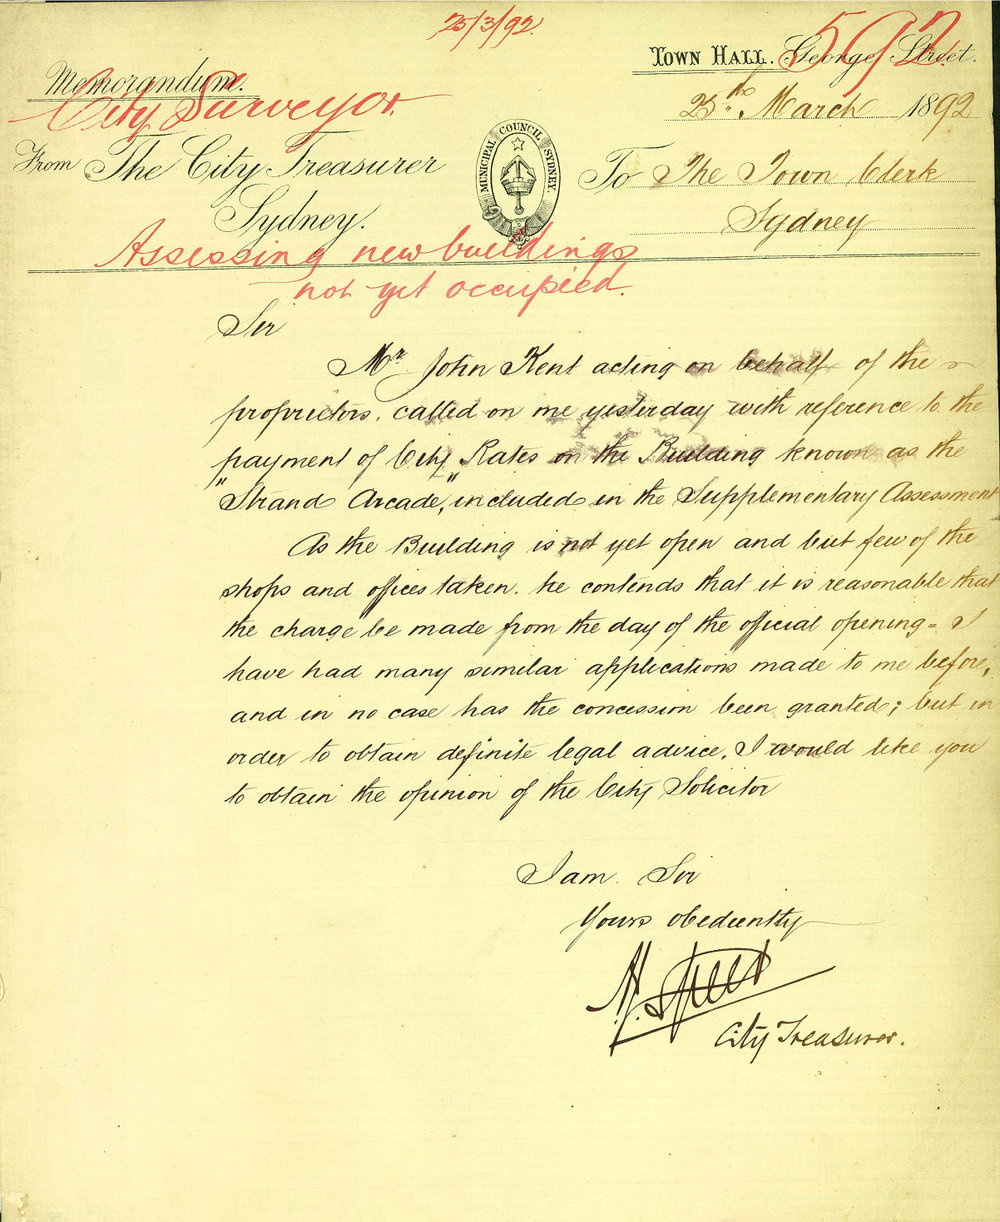 25/3/92.
592
TOWN HALL. George Street.
Memorandum.
City Surveyor
25th March 1892
From The City Treasurer
Sydney.
MUNICIPAL COUNCIL SYDNEY.
To The Town Clerk
Sydney
Assessing new buildings
not yet occupied.
Sir
Mr. John Kent acting on behalf of the
proprietors, called on me yesterday with reference to the
payment of City Rates on the Building known as the
"Strand Arcade", included in the Supplementary Assessment
As the Building is not yet open and but few of the
shops and offices taken. he contends that it is reasonable that
the charge be made from the day of the official opening - I
have had many similar applications made to me before,
and in no case has the concession been granted; but in
order to obtain definite legal advice, I would like you
to obtain the opinion of the City Solicitor
I am Sir
Yours obediently
City Treasurer.